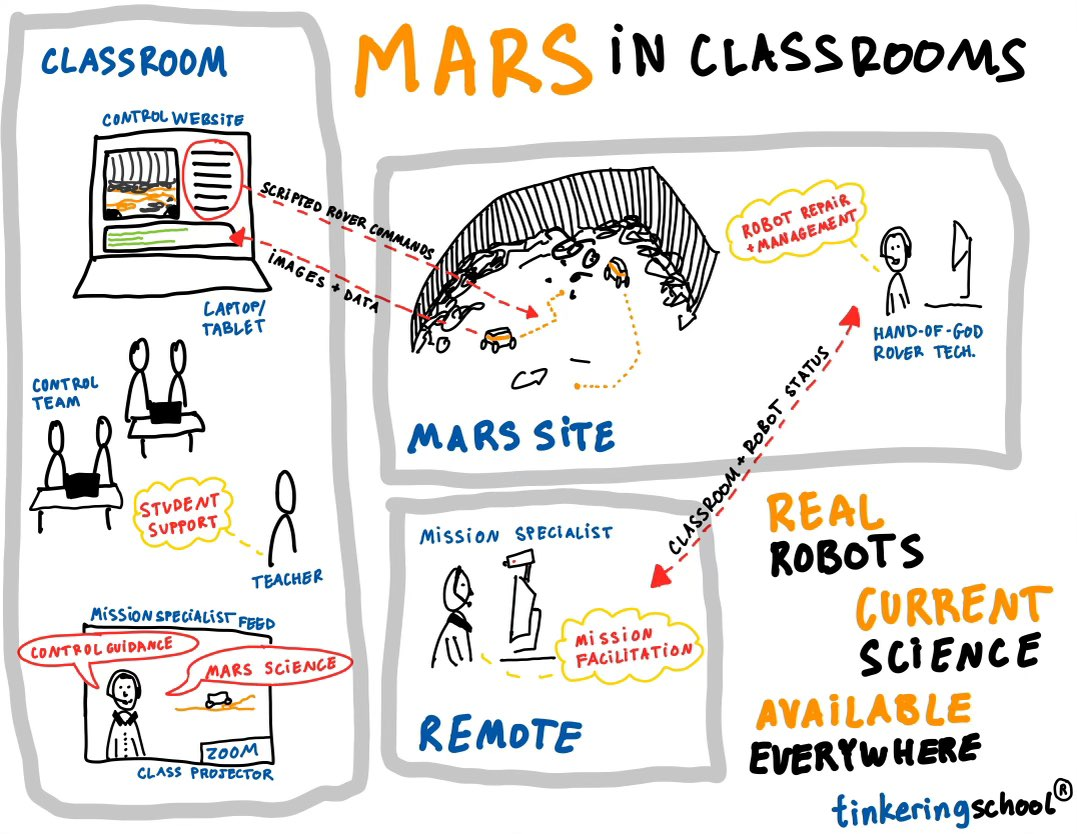 MARS IN CLASSROOMS
CLASSROOM
CONTROL WEBSITE
SCRIPTED ROVER COMMANDS
IMAGES + DATA
LAPTOP/
TABLET
CONTROL
TEAM
STUDENT
SUPPORT
TEACHER
MISSION SPECIALIST FEED
CONTROL GUIDANCE
MARS SCIENCE
ZOOM
CLASS PROJECTOR
ROBOT REPAIR
+ MANAGEMENT
HAND-OF-GOD
ROVER TECH.
MARS SITE
CLASSROOM + ROBOT STATUS
MISSION SPECIALIST
MISSION
FACILITATION
REMOTE
REAL
ROBOTS
CURRENT
SCIENCE
AVAILABLE
EVERYWHERE
tinkeringschool®